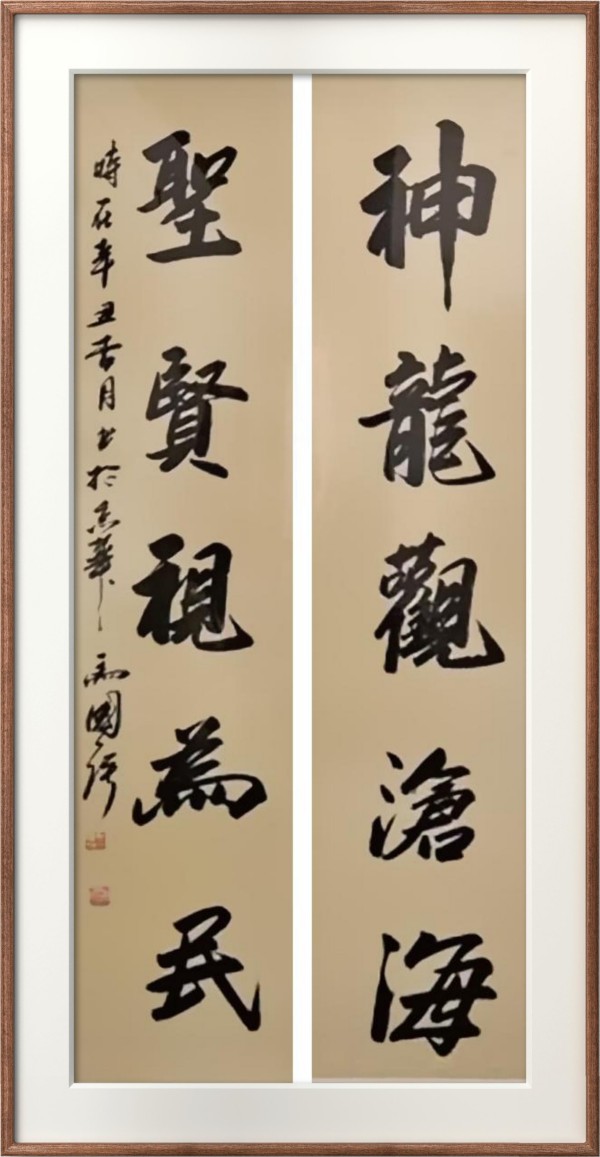 神龍觀滄海
聖賢視為民
時在辛丑杏月書於京華
國